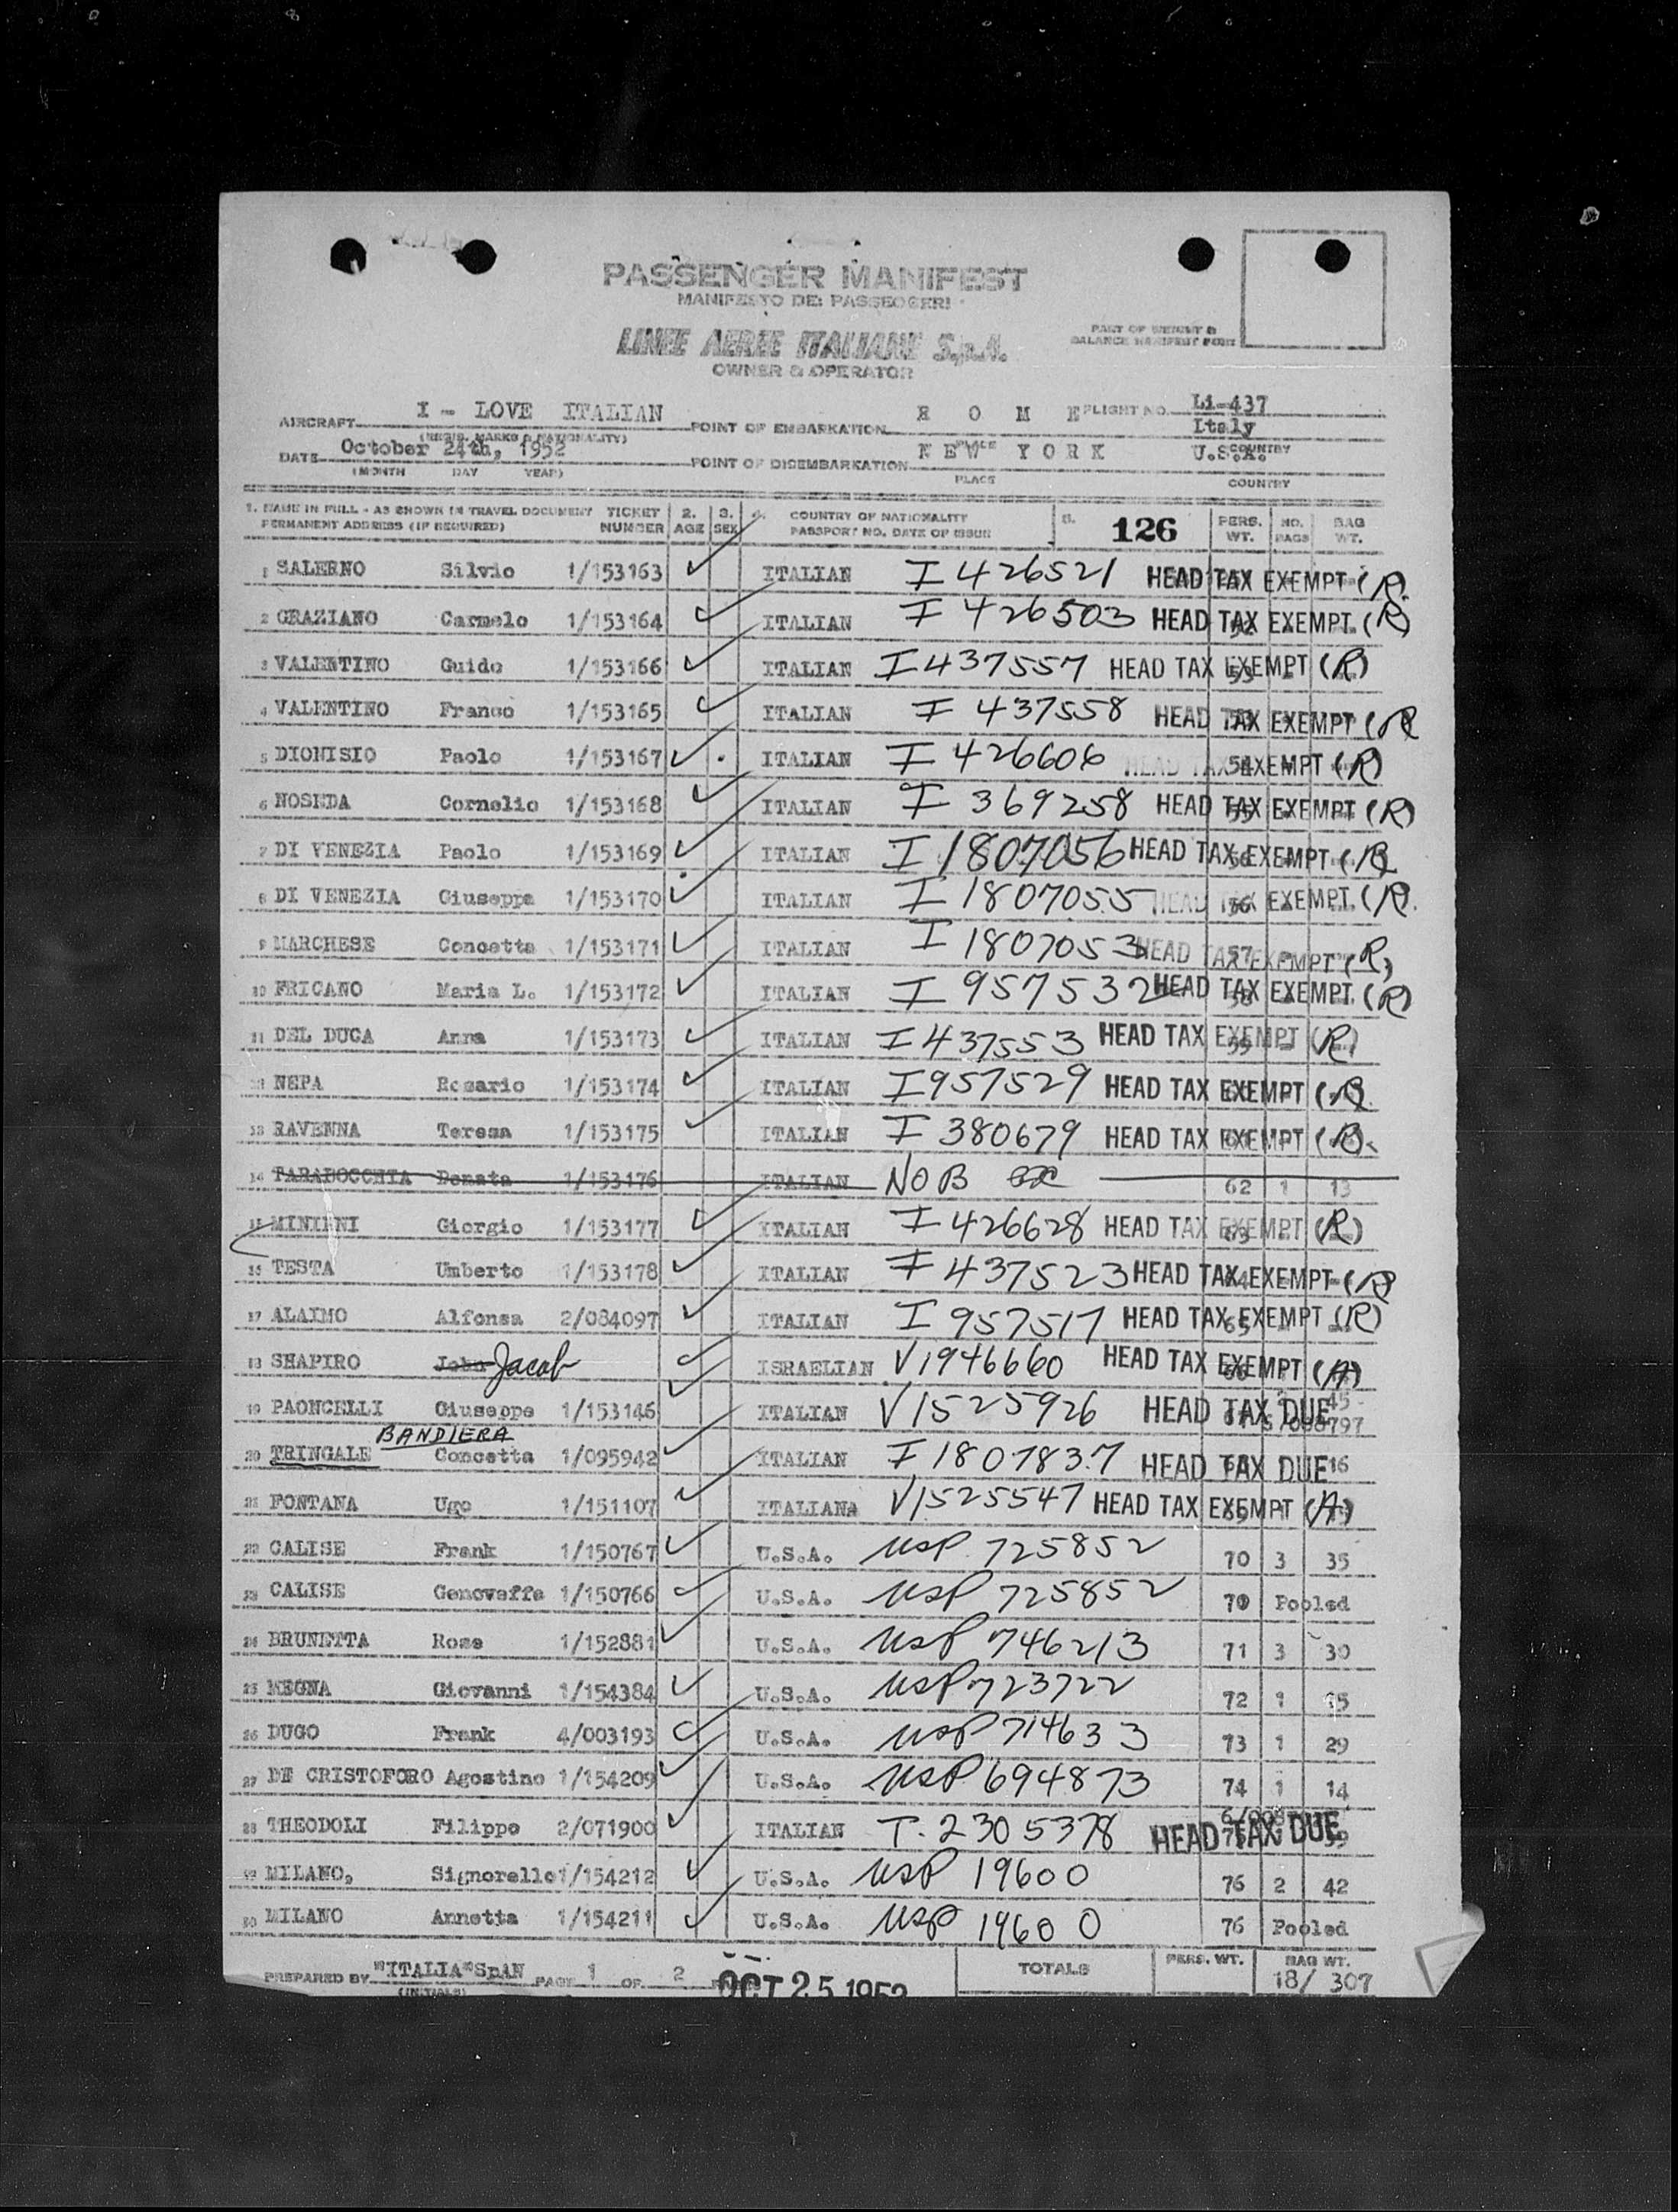 PASSENGER MANIFEST
MANIFESTO DEI PASSEGGERI
LINEE AEREE ITALIANE S.p.A.
OWNER & OPERATOR
PART OF WEIGHT &
BALANCE MANIFEST FORM
AIRCRAFT I - LOVE ITALIAN POINT OF EMBARKATION R O M E FLIGHT NO. Li-437
(REGIS. MARKS & NATIONALITY) PLACE Italy COUNTRY
DATE October 24th, 1952 POINT OF DISEMBARKATION NEW YORK U.S.A.
(MONTH DAY YEAR) PLACE COUNTRY
1. NAME IN FULL - AS SHOWN IN TRAVEL DOCUMENT TICKET 2. 3. 4. COUNTRY OF NATIONALITY 5. 126 PERS. NO. BAG
PERMANENT ADDRESS (IF REQUIRED) NUMBER AGE SEX PASSPORT NO. DATE OF ISSUE WT. BAGS WT.
1 SALERNO Silvio 1/153163 ITALIAN I 426521 HEAD TAX EXEMPT (R)
2 GRAZIANO Carmelo 1/153164 ITALIAN I 426503 HEAD TAX EXEMPT (R)
3 VALENTINO Guido 1/153166 ITALIAN I 437557 HEAD TAX EXEMPT (R)
4 VALENTINO Franco 1/153165 ITALIAN I 437558 HEAD TAX EXEMPT (R
5 DIONISIO Paolo 1/153167 ITALIAN I 426606 HEAD TAX EXEMPT (R)
6 NOSEDA Cornelio 1/153168 ITALIAN I 369258 HEAD TAX EXEMPT (R)
7 DI VENEZIA Paolo 1/153169 ITALIAN I 1807056 HEAD TAX EXEMPT (R
8 DI VENEZIA Giuseppa 1/153170 ITALIAN I 1807055 HEAD TAX EXEMPT (R).
9 MARCHESE Concetta 1/153171 ITALIAN I 1807053 HEAD TAX EXEMPT (R)
10 FRICANO Maria L. 1/153172 ITALIAN I 957532 HEAD TAX EXEMPT (R)
11 DEL DUCA Anna 1/153173 ITALIAN I 437553 HEAD TAX EXEMPT (R)
12 NEPA Rosario 1/153174 ITALIAN I 957529 HEAD TAX EXEMPT (R).
13 RAVENNA Teresa 1/153175 ITALIAN I 380679 HEAD TAX EXEMPT (R).
14 TARABOCCHIA Renata 1/153176 ITALIAN NOB 62 1 13
15 MINIENI Giorgio 1/153177 ITALIAN I 426628 HEAD TAX EXEMPT (R)
16 TESTA Umberto 1/153178 ITALIAN I 437523 HEAD TAX EXEMPT (R)
17 ALAIMO Alfonsa 2/084097 ITALIAN I 957517 HEAD TAX EXEMPT (R)
18 SHAPIRO John Jacob ISRAELIAN V1946660 HEAD TAX EXEMPT (A)
19 PAONCELLI Giuseppe 1/153146 ITALIAN V1525926 HEAD TAX DUE 45
BANDIERA
20 TRINGALE Concetta 1/095942 ITALIAN I 1807837 HEAD TAX DUE 16
21 FONTANA Ugo 1/151107 ITALIANa V1525547 HEAD TAX EXEMPT (A)
22 CALISE Frank 1/150767 U.S.A. USP. 725852 70 3 35
23 CALISE Genoveffa 1/150766 U.S.A. USP 725852 70 Pooled
24 BRUNETTA Rose 1/152881 U.S.A. USP 746213 71 3 30
25 MEGNA Giovanni 1/154384 U.S.A. USP 723722 72 1 15
26 DUGO Frank 4/003193 U.S.A. USP 714633 73 1 29
27 DE CRISTOFORO Agostino 1/154209 U.S.A. USP 694873 74 1 14
28 THEODOLI Filippo 2/071900 ITALIAN T. 2305378 HEAD TAX DUE
29 MILANO, Signorello 1/154212 U.S.A. USP 19600 76 2 42
30 MILANO Annetta 1/154211 U.S.A. USP 19600 76 Pooled
PREPARED BY "ITALIA" SpAN PAGE 1 OF 2 OCT 25 1952 TOTALS PERS. WT. BAG WT.
(INITIALS) 18/ 307